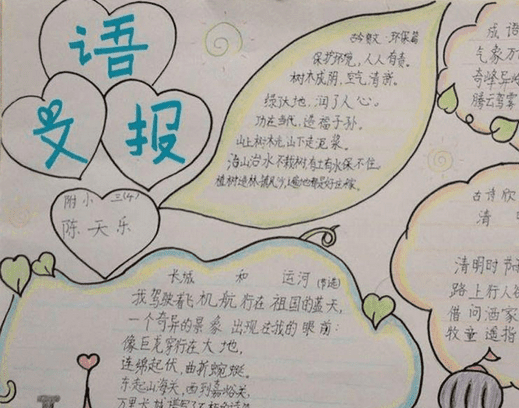 语
文
报
附小 三(4)
陈天乐
古今贤文·环保篇
保护环境,人人有责。
树木成荫,空气清新。
绿了大地,润了人心。
功在当代,造福子孙。
山上树木光,山下走泥浆。
治山治水不栽树,有土有水保不住。
植树造林,
长城 和 运河(节选)
我驾驶着飞机航行在祖国的蓝天,
一个奇异的景象出现在我的眼前:
像巨龙穿行在大地,
连绵起伏,曲折蜿蜒。
东起山海关,西到嘉峪关,
万里长城
成语
气象万
奇峰异
腾云驾雾
古诗欣
清
清明时节
路上行人
借问酒家
牧童遥指